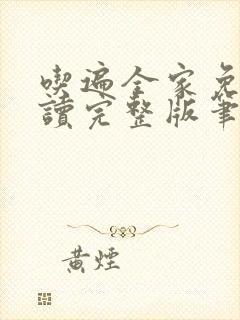 喫遍全家免
讀完整版筆
黃煙